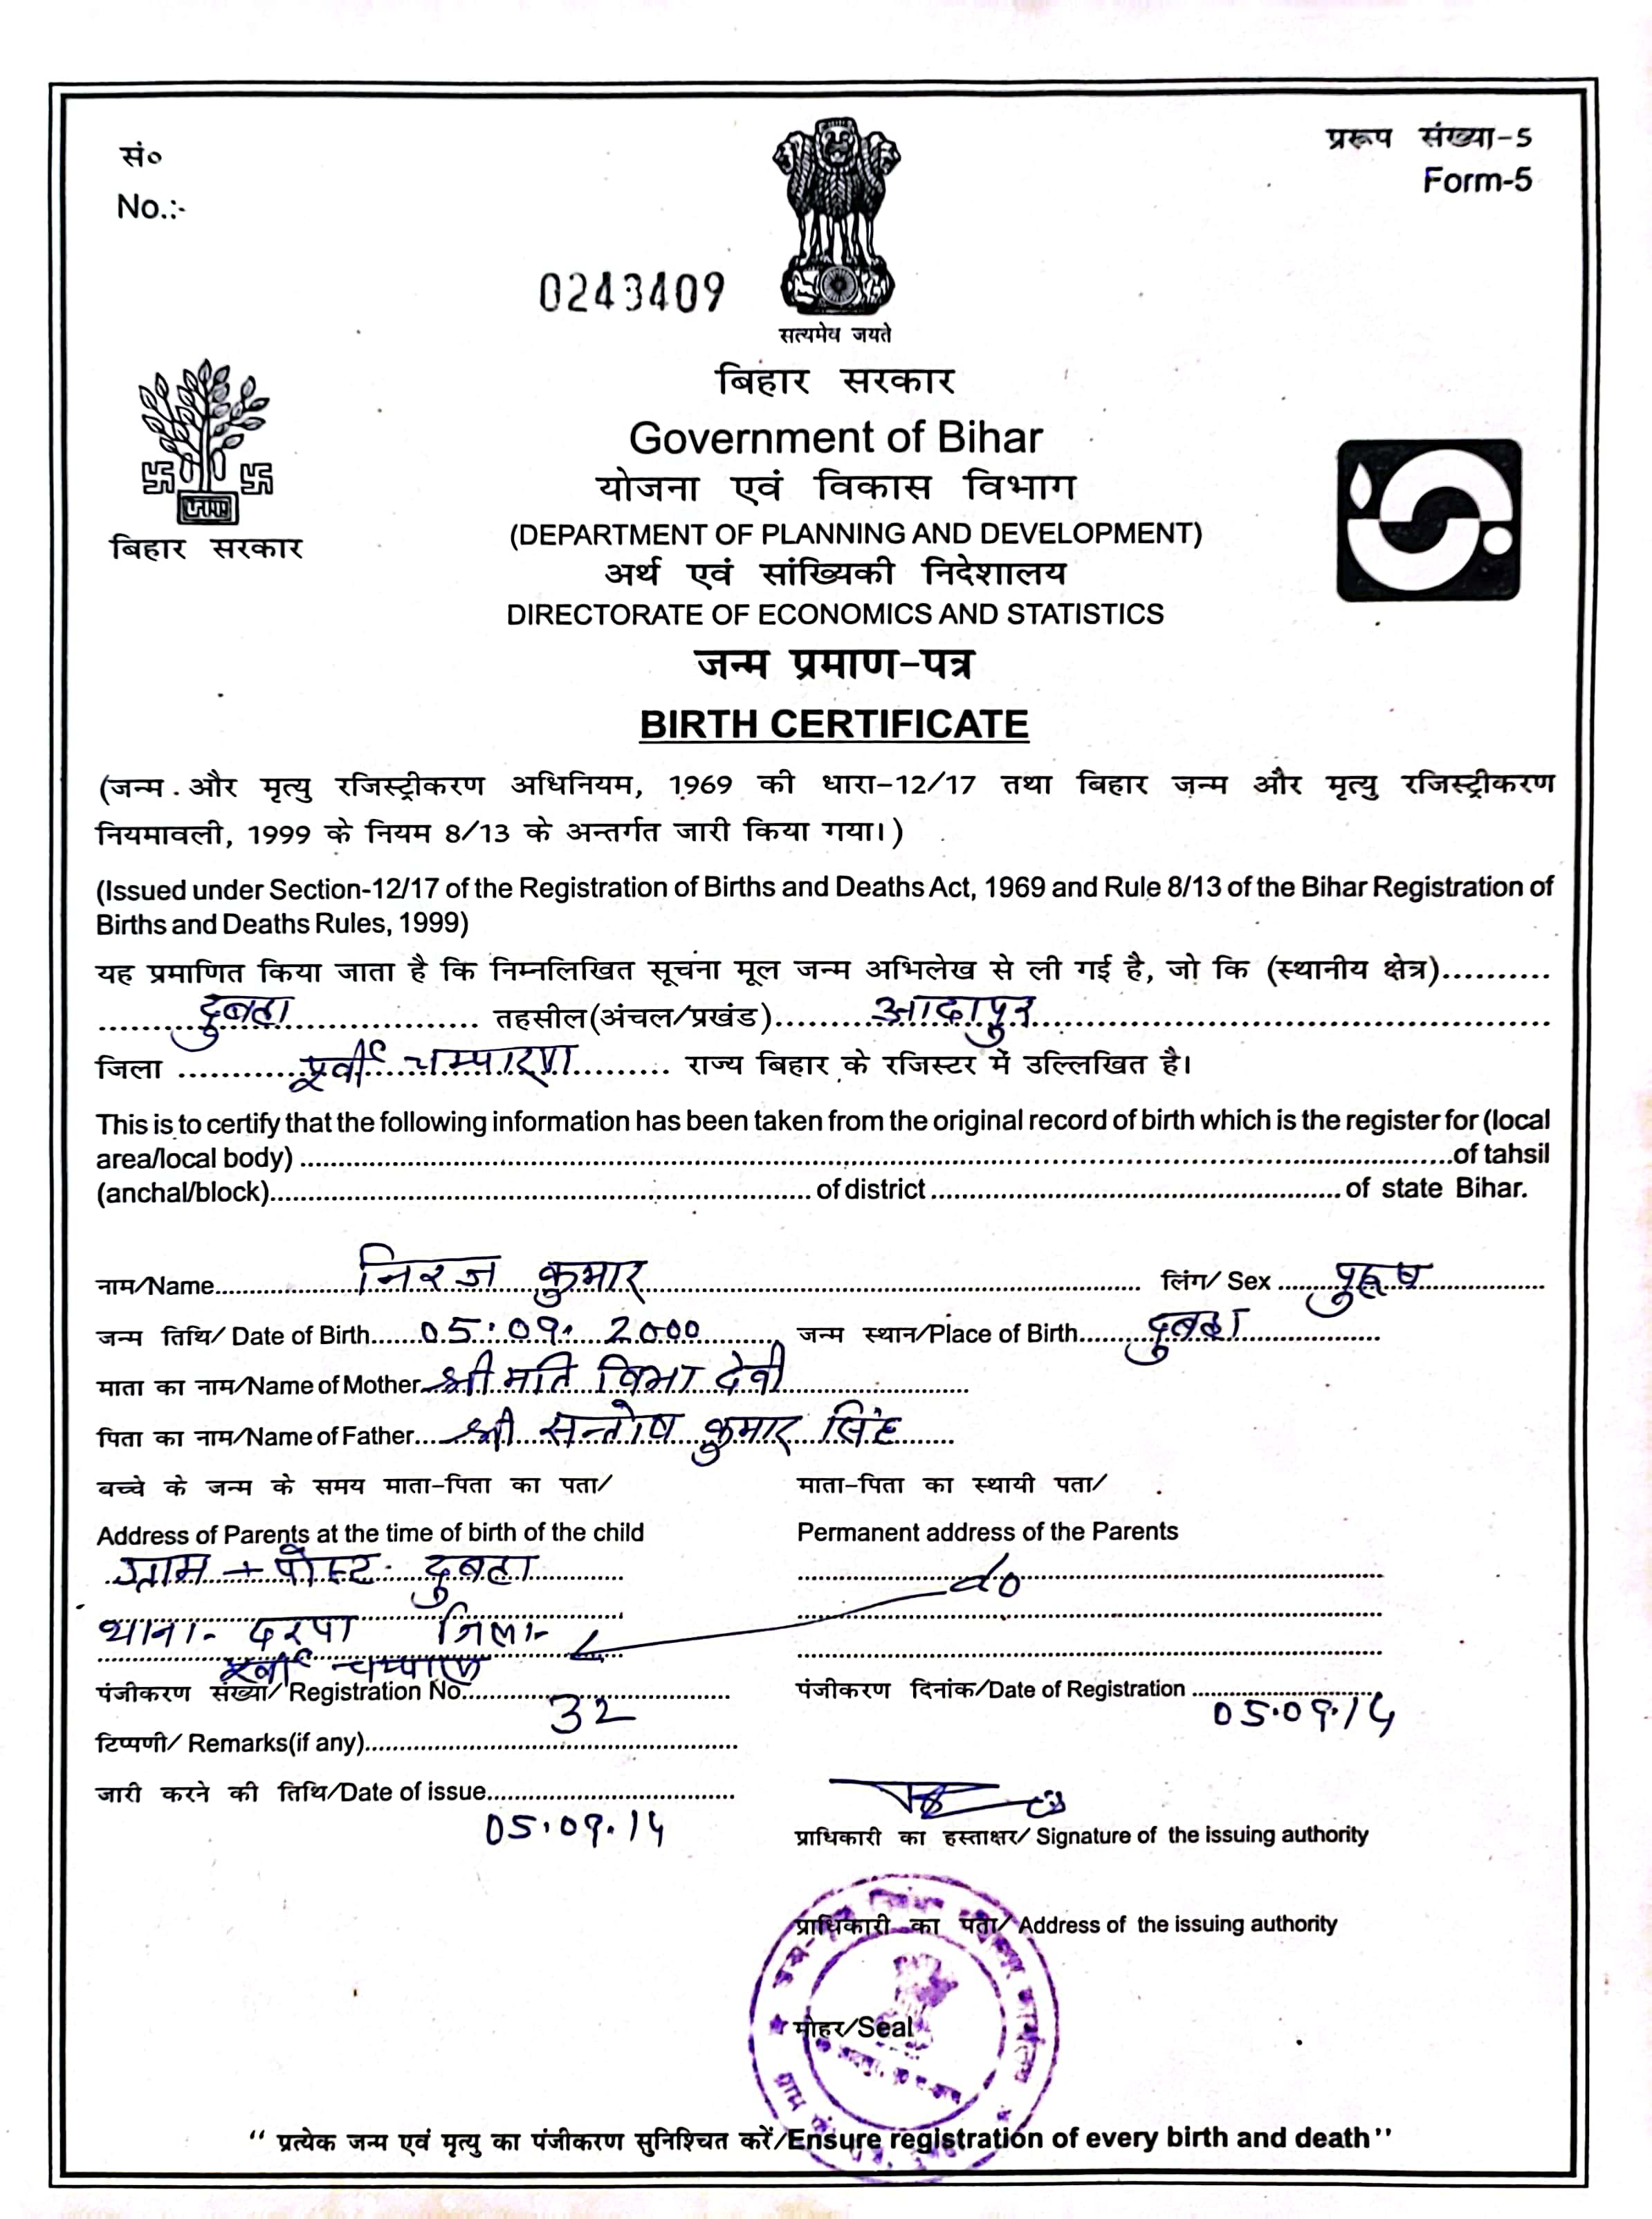 सं०
No.:-
प्ररूप संख्या-5
Form-5
0243409
सत्यमेव जयते
बिहार सरकार
बिहार सरकार
Government of Bihar
योजना एवं विकास विभाग
(DEPARTMENT OF PLANNING AND DEVELOPMENT)
अर्थ एवं सांख्यिकी निदेशालय
DIRECTORATE OF ECONOMICS AND STATISTICS
जन्म प्रमाण-पत्र
BIRTH CERTIFICATE
(जन्म और मृत्यु रजिस्ट्रीकरण अधिनियम, 1969 की धारा-12/17 तथा बिहार जन्म और मृत्यु रजिस्ट्रीकरण
नियमावली, 1999 के नियम 8/13 के अन्तर्गत जारी किया गया।)
(Issued under Section-12/17 of the Registration of Births and Deaths Act, 1969 and Rule 8/13 of the Bihar Registration of
Births and Deaths Rules, 1999)
यह प्रमाणित किया जाता है कि निम्नलिखित सूचना मूल जन्म अभिलेख से ली गई है, जो कि (स्थानीय क्षेत्र)..........
दुबहा तहसील(अंचल/प्रखंड) आदापुर
जिला पूर्वी चम्पारण राज्य बिहार के रजिस्टर में उल्लिखित है।
This is to certify that the following information has been taken from the original record of birth which is the register for (local
area/local body) of tahsil
(anchal/block) of district of state Bihar.
नाम/Name निरज कुमार लिंग/ Sex पुरूष
जन्म तिथि/ Date of Birth 05.09.2000 जन्म स्थान/Place of Birth दुबहा
माता का नाम/Name of Mother श्रीमति विभा देवी
पिता का नाम/Name of Father श्री सन्तोष कुमार सिंह
बच्चे के जन्म के समय माता-पिता का पता/ माता-पिता का स्थायी पता/
Address of Parents at the time of birth of the child Permanent address of the Parents
ग्राम + पोस्ट- दुबहा do
थाना- दरपा जिला-
पूर्वी चम्पारण
पंजीकरण संख्या/ Registration No. 32 पंजीकरण दिनांक/Date of Registration 05.09.14
टिप्पणी/ Remarks(if any)
जारी करने की तिथि/Date of issue 05.09.14
प्राधिकारी का हस्ताक्षर/ Signature of the issuing authority
प्राधिकारी का पता/ Address of the issuing authority
मोहर/Seal
“ प्रत्येक जन्म एवं मृत्यु का पंजीकरण सुनिश्चित करें/Ensure registration of every birth and death”